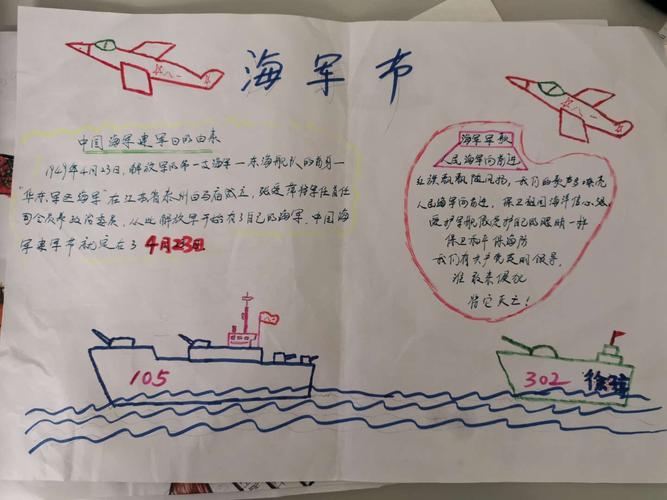 海军节
八一
八一
中国海军建军日的由来
1949年4月23日,解放军的第一支海军—东海舰队的前身—
"华东军区海军"在江苏省泰州白马庙成立,张爱萍担任首任
司令员兼政治委员,从此解放军开始有了自己的海军,中国海
军建军节就定在了4月23日
海军军歌
人民海军向前进
红旗飘飘随风扬,我们的歌声多嘹亮
人民海军向前进,保卫祖国海洋信心强
爱护军舰像爱护自己的眼睛一样
保卫和平保海防
我们有共产党英明领导,
谁敢来侵犯
管它灭亡!
105
302